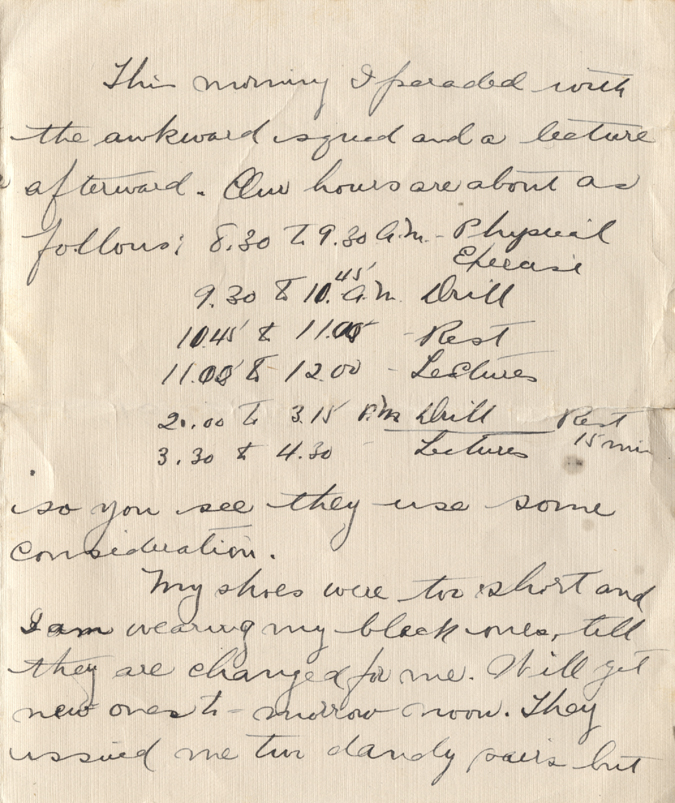 This morning I paraded with
the awkward squad and a lecture
afterward. Our hours are about as
follows; 8.30 to 9.30 a.m. - Physical
Exercise
9.30 to 10.45 a.m. Drill
10.45 to 11.00 - Rest
11.00 to 12.00 - Lectures
2.00 to 3.15 P.M. Drill Rest
15 min
3.30 to 4.30 - Lectures
so you see they use some
consideration.
My shoes were too short and
I am wearing my black ones, till
they are changed for me. Will get
new ones to-morrow noon. They
issued me two dandy pairs but